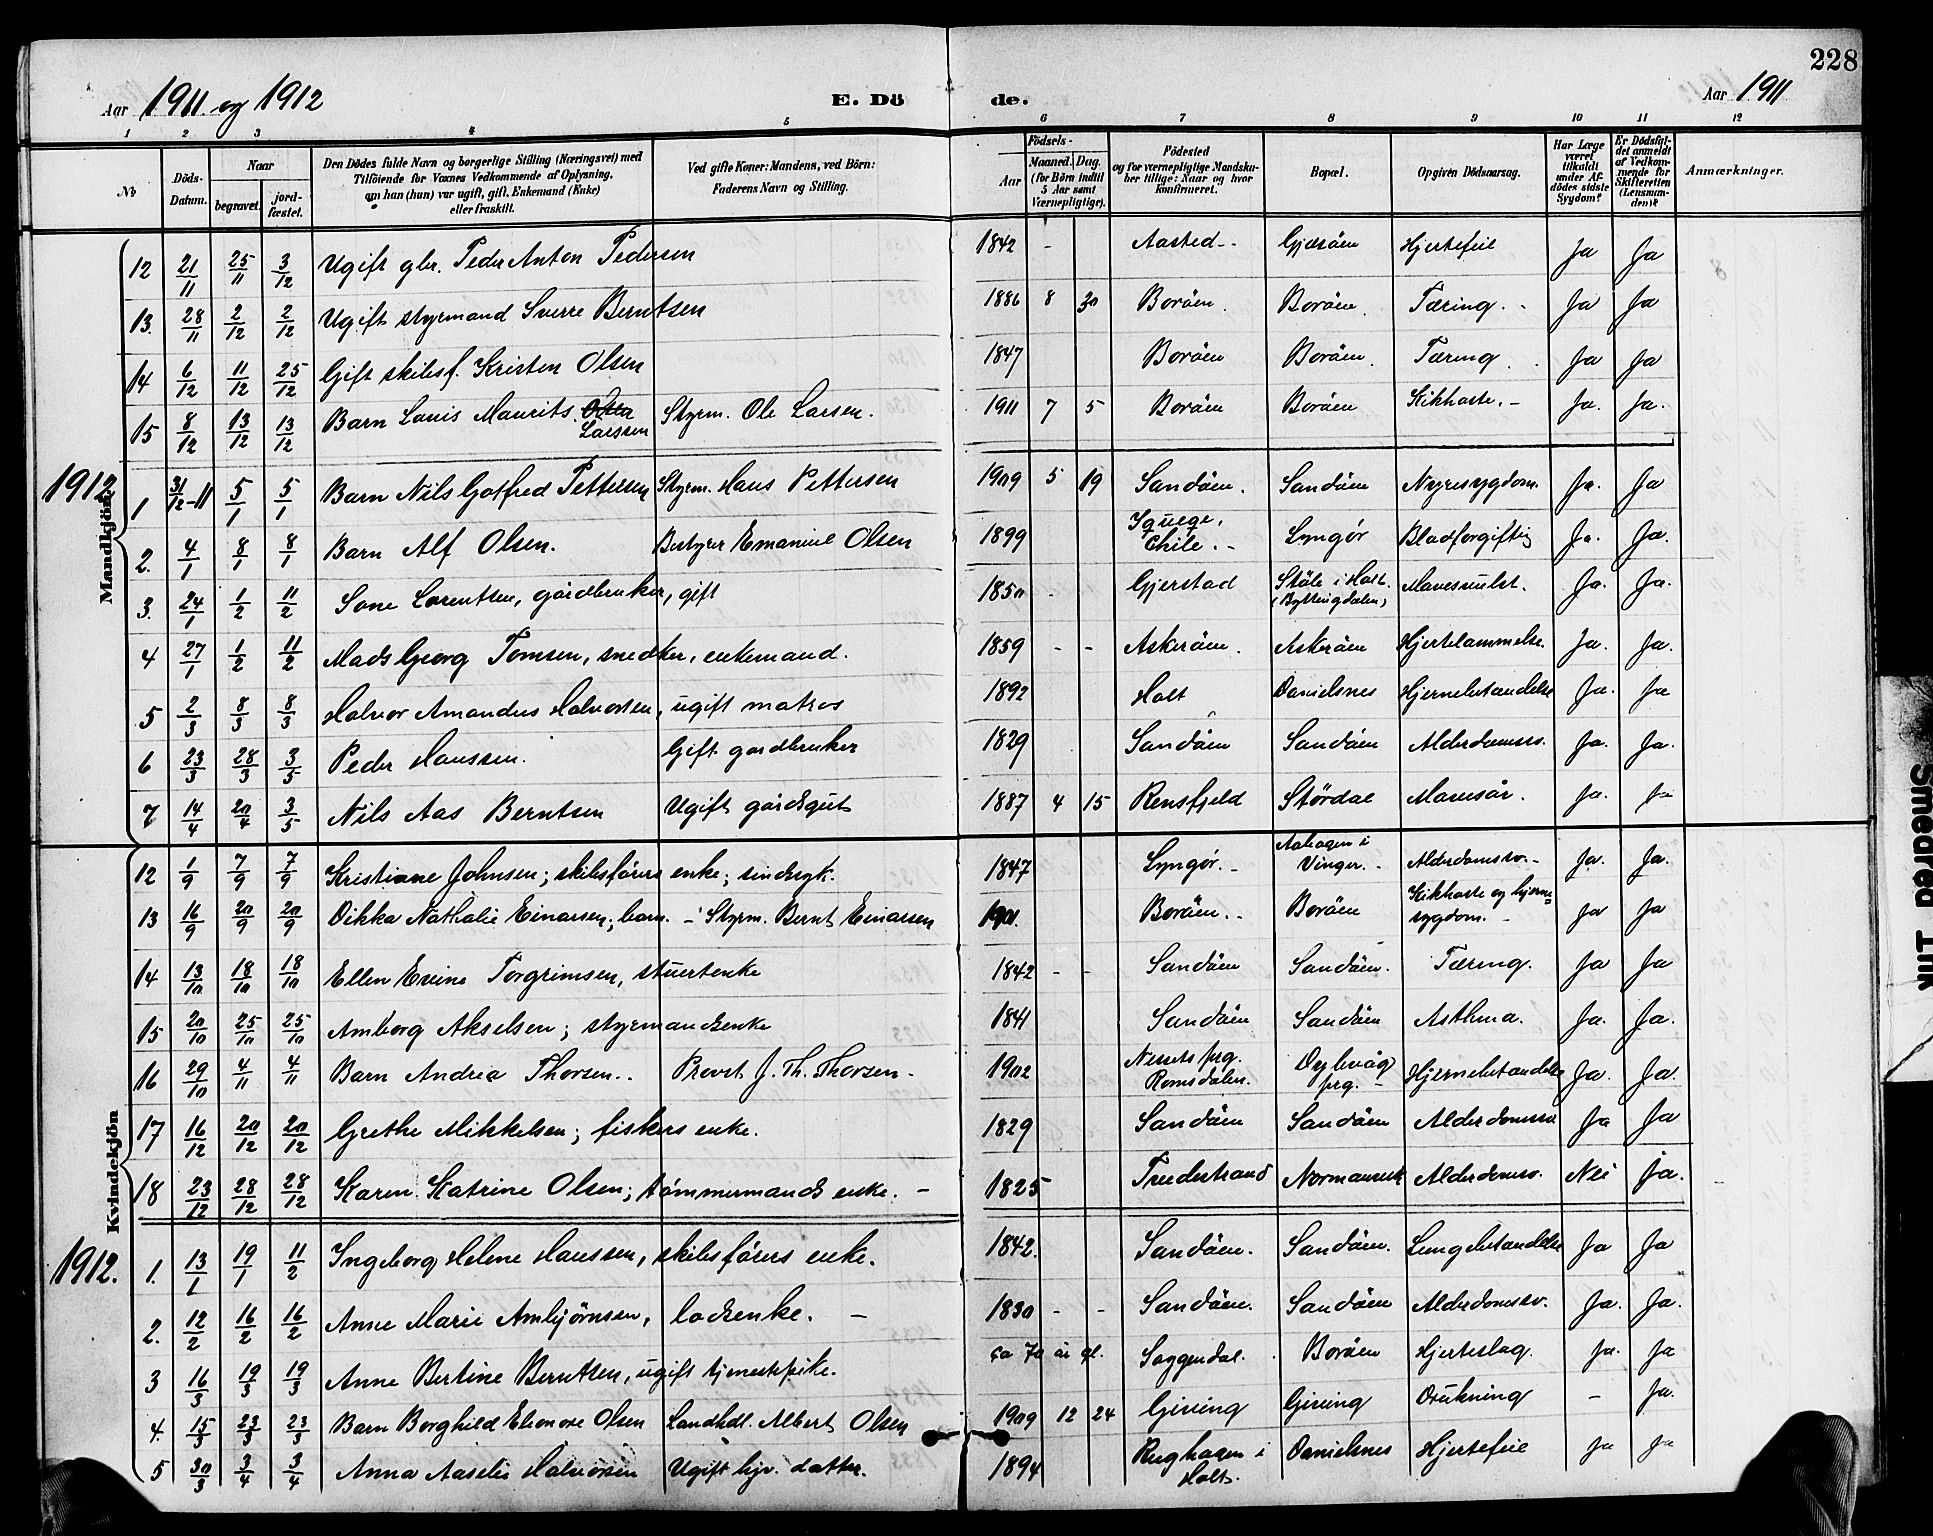 228
Aar 1911 og 1912
E. Dö de.
Aar 1911
1 2 3 4 5 6 7 8 9 10 11 12
No
Döds-Datum.
Naar begravet. jord-fæstet.
Den Dödes fulde Navn og borgerlige Stilling (Næringsvei) med Tilföiende for Voxnes Vedkommende af Oplysning, om han (hun) var ugift, gift, Enkemand (Enke) eller fraskilt.
Ved gifte Koner: Mandens, ved Börn: Faderens Navn og Stilling.
Födsels- Aar Maaned. Dag. (for Börn indtil 5 Aar samt Værnepligtige).
Födested og for værnepligtige Mandskaber tillige: Naar og hvor konfirmeret.
Bopæl.
Opgiven Dödsaarsag.
Har Læge været tilkaldt under Afdödes sidste Sygdom?
Er Dödsfaldet anmeldt af Vedkommende for Skifteretten (Lensmanden)?
Anmærkninger.
Mandkjön.
12 21/11 25/11 3/12 Ugift gbr. Peder Anton Pedersen 1842 - Aasted - Gjæsöen Hjertefeil Ja Ja
13. 28/11 2/12 2/12 Ugift styrmand Sverre Berntsen 1886 8 30 Boröen. Boröen. Tæring. - Ja Ja
14 6/12 11/12 25/12 Gift skibsf. Kristen Olsen 1847 Boröen Boröen. Tæring. Ja Ja
15 8/12 13/12 13/12 Barn Louis Maurits Olsen Larssen Styrm. Ole Larsen. 1911 7 5 Boröen Boröen Kikhoste. - Ja. Ja.
1912.
1 31/12-11 5/1 5/1 Barn Nils Gotfred Pettersen Styrm. Hans Pettersen 1909 5 19 Sandöen. Sandöen Nyresygdom. Ja. Ja
2. 4/1 8/1 8/1 Barn Alf Olsen. Bestyrer Emanuel Olsen 1899 Iqueqe, Chile. - Lyngör Blodforgiftig Ja. Ja.
3. 24/1 1/2 11/2 Sone Lorentsen, gårdbruker, gift 1850 - Gjerstad Stöle i Holt. (Byttingdalen) Mavesvulst. Ja. Ja.
4 27/1 1/2 11/2 Mads Georg Tomsen, snedker, enkemand. 1859 - - Askeröen. Askeröen Hjertelammelse. Ja. Ja.
5 2/3 8/3 8/3 Halvor Amandus Halvorsen, ugift matros 1892 Holt Danielsnes Hjernebetændelse Ja. Ja
6 23/3 28/3 3/5 Peder Hanssen. Gift gardbruker 1829 Sandöen Sandöen Alderdomssv. Ja. Ja.
7 14/4 20/4 3/5 Nils Aas Berntsen Ugift gårdsgut 1887 4 15 Rensfjeld Stördal Mavesår. Ja. Ja
Kvindekjön
12 1/9 7/9 7/9 Kristiane Johnsen; skibsförers enke; sindsyk. 1847 Lyngör. - Aahagen i Vinger. - Alderdomssv. - Ja. Ja.
13 16/9 20/9 20/9 Dikka Nathalie Einarsen; barn. - Styrm. Bernt Einarsen 1901. Boröen. - Boröen Kikhoste og hjerne= sygdom. - Ja Ja
14 13/10 18/10 18/10 Ellen Evine Torgrimsen, stuertenke 1842 - - Sandöen Sandöen. Tæring. Ja Ja
15 20/10 25/10 25/10 Amborg Akselsen; styrmandsenke 1841 Sandöen Sandöen Asthma. Ja. Ja.
16 29/10 4/11 4/11 Barn Andrea Thorsen. Provst J. Th. Thorsen. 1902 Nessets prg. Romsdalen. Dybvåg prg. - Hjernebetændelse Ja. Ja.
17 16/12 20/12 20/12 Grethe Mikkelsen; fiskers enke. 1829 Sandöen Sandöen Alderdomssv. Ja Ja
18 23/12 28/12 28/12 Karen Katrine Olsen; tömmermands enke. - 1825 Tvedestrand Normansvik Alderdomssv. Nei Ja.
1912.
1. 13/1 19/1 11/2 Ingeborg Helene Hanssen, skibsförers enke. 1842. Sandöen. Sandöen. Lungebetændelse Ja Ja
2. 12/2 16/2 16/2 Anne Marie Ambjörnsen, lodsenke. - 1830 - - Sandöen. Sandöen Alderdomssv. Ja. Ja.
3 16/3 19/3 19/3 Anne Bertine Berntsen, ugift tjenestepike. ca 70 år gl. Soggendal. Boröen Hjerteslag Ja. Ja
4. 15/3 23/3 23/3 Barn Borghild Eleonore Olsen Landhdl. Albert Olsen 1909 12 24 Giving Giving Drukning - Ja.
5 30/3 3/4 3/4 Anna Aaselie Halvorsen Ugift hjv. datter. 1894 Rughagen i Holt. Danielsnes Hjertefeil Ja Ja
Smeared Ink